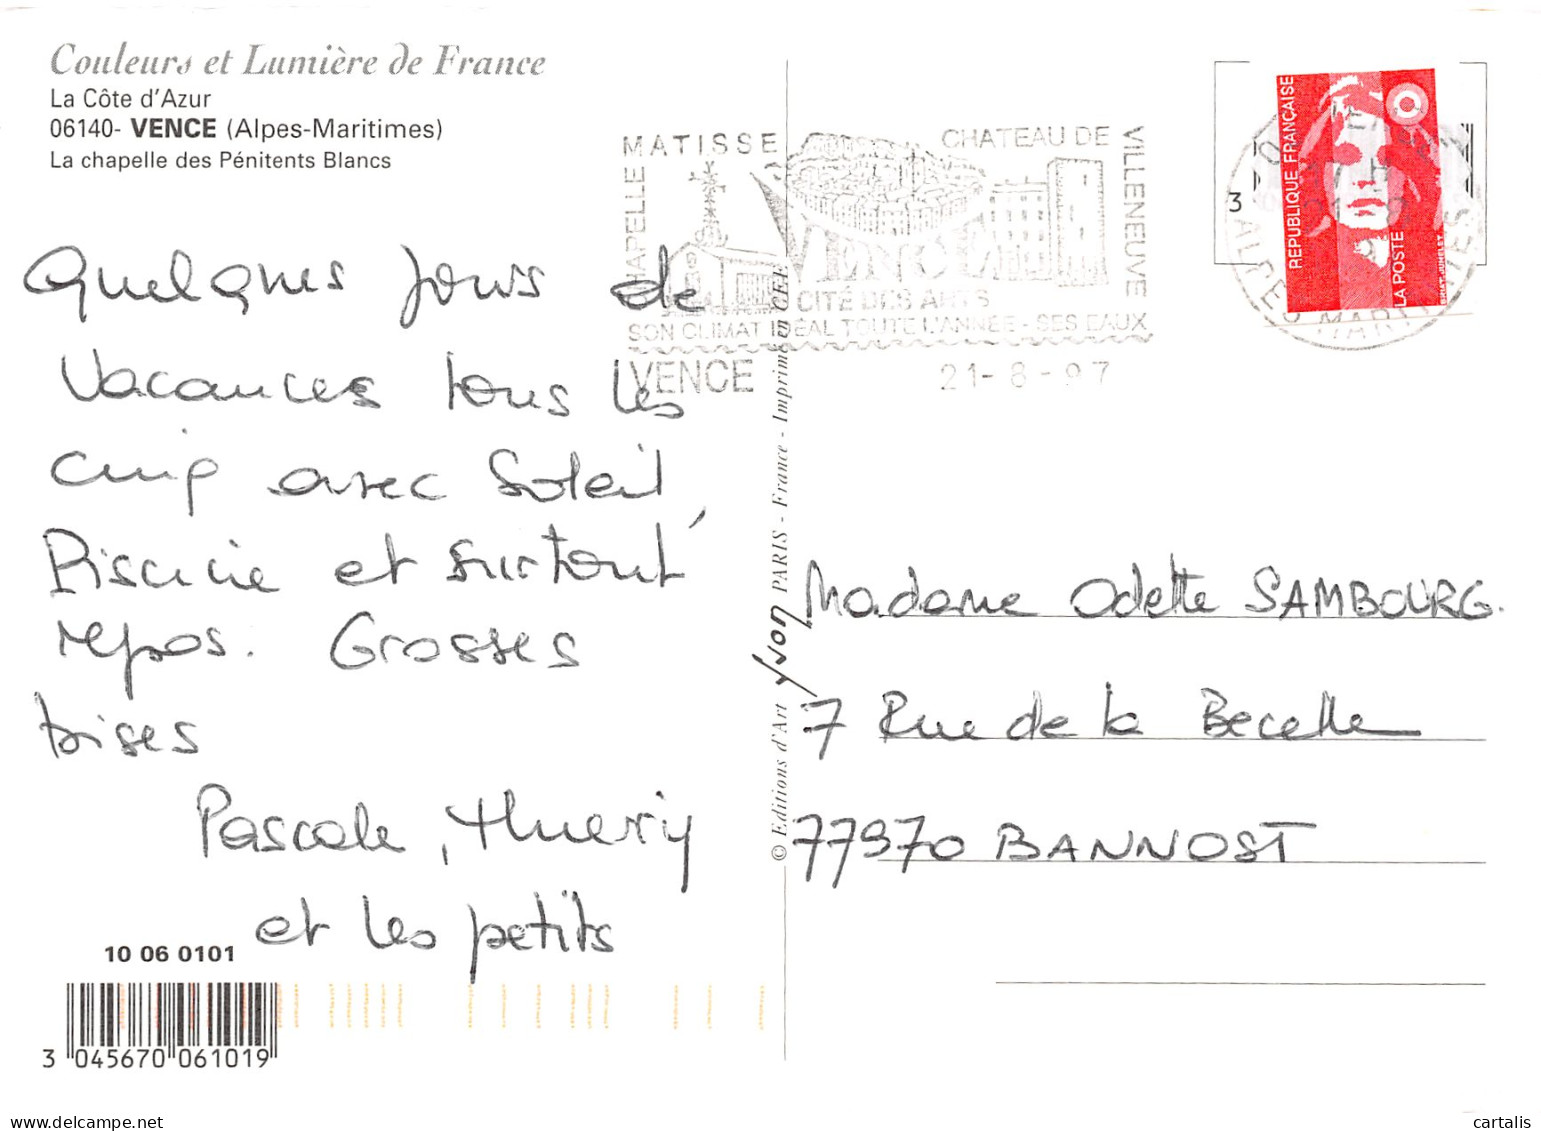 Couleurs et Lumière de France
La Côte d'Azur
06140- VENCE (Alpes-Maritimes)
La chapelle des Pénitents Blancs
Quelques jours de
Vacances tous les
cinq avec Soleil,
Piscine et surtout
repos. Grosses
bises
Pascale, Thierry
et les petits
10 06 0101
3 045670 061019
CHAPELLE MATISSE
CHATEAU DE VILLENEUVE
VENCE
CITÉ DES ARTS
SON CLIMAT IDÉAL TOUTE L'ANNÉE - SES EAUX
VENCE 21-8-97
© Editions d'Art Yvon PARIS - France - Imprimé en CEE
3
REPUBLIQUE FRANÇAISE
LA POSTE
ALPES MARITIMES
Madame Odette SAMBOURG.
7 Rue de la Becelle
77970 BANNOST
cartalis